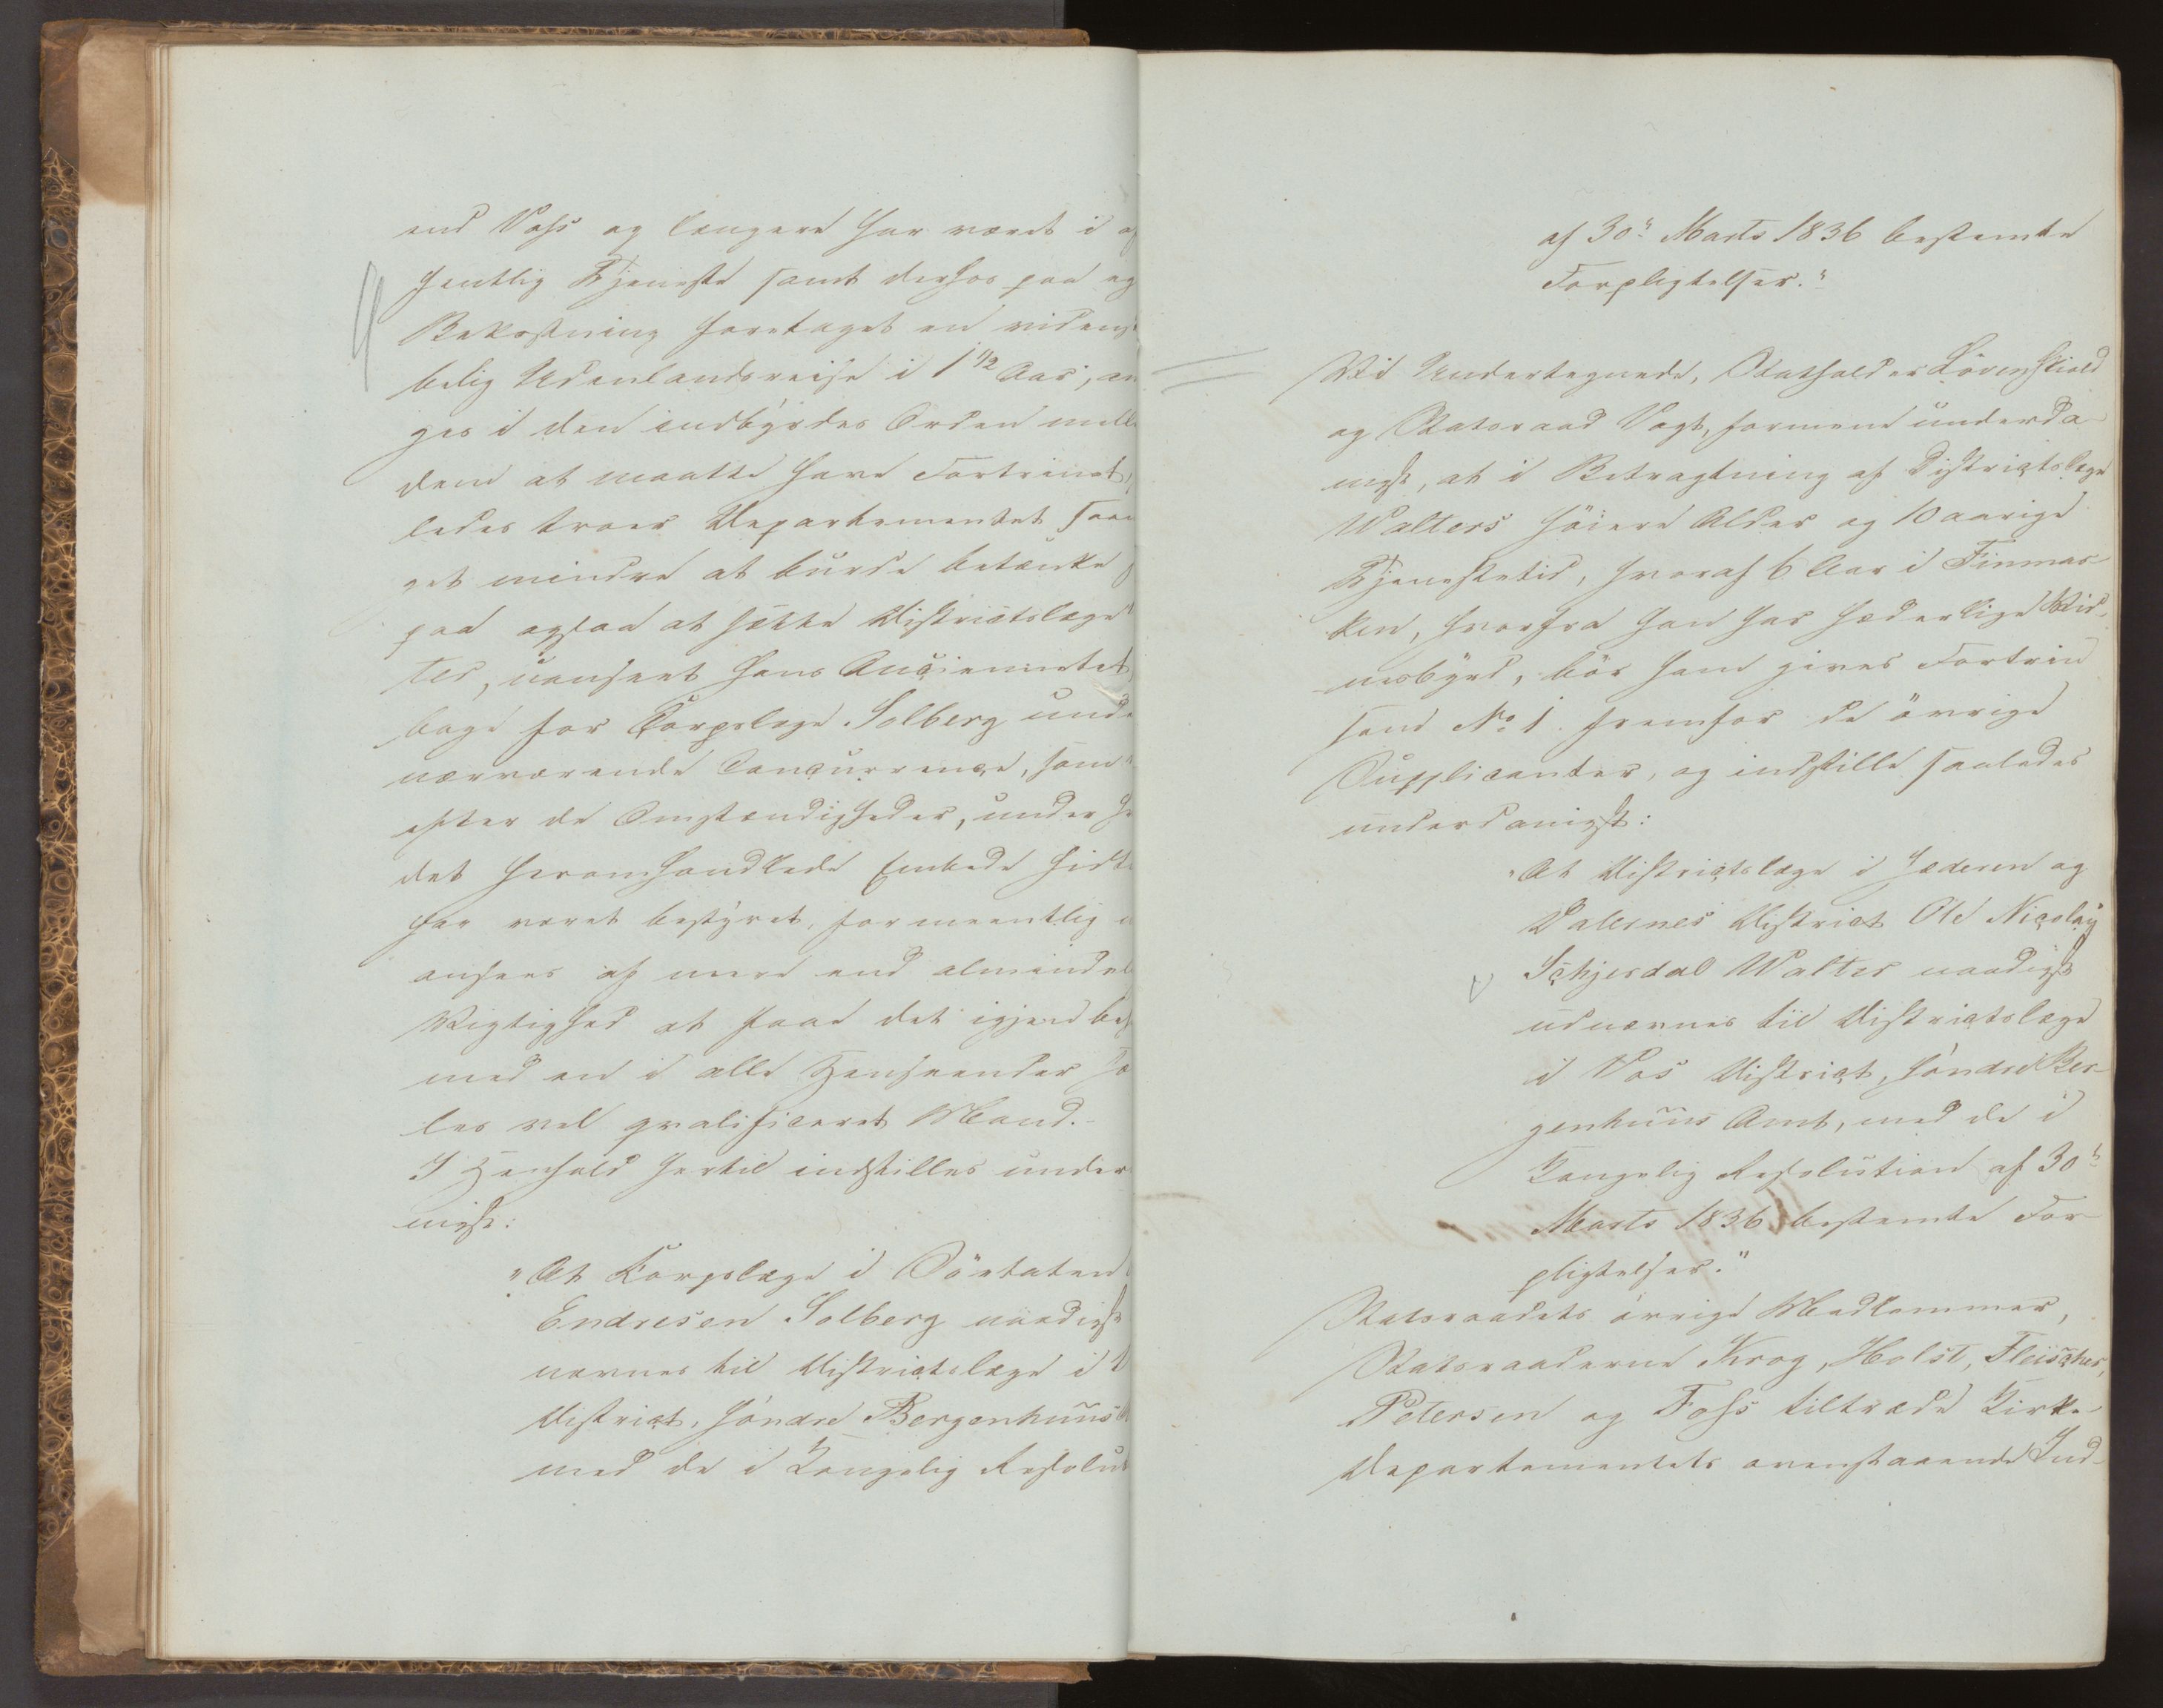 end Voss og længere har været i of
fentlig Tjeneste samt derhos paa eg
Bekostning foretaget en vidensk
belig Udenlandsreise i 1 1/2 Aar, an
ges i den indbyrdes Orden mell
dem at maatte have Fortrinet,
ledes troer Departementet saa
get mindre at burde betænke
paa ogsaa at sætte Districtslæge
ter, uanseet hans Anciennetet
bage for Corpslæge Solberg unde
nærværende Concurrence, som
efter de Omstændigheder, under h
det heromhandlede Embede hidt
har været bestyret, formeentlig
ansees af mere end almindel
Vigtighed at faae det igjen bes
med en i alle Henseender
les vel qvalificeret Mand.-
I Henhold hertil indstilles under
nigst:
"At Korpslæge i
Endresen Solberg naadigst
nævnes til Districtslæge i V
District, söndre Bergenhuus
med de i Kongelig Resolut
af 30te Marts 1836 bestemte
Forpligtelser."
Vi Undertegnede, Statholder Lövenskiold
og Statsraad Vogt, formene underda-
nigst, at i Betragtning af Districtslæge
Walters höiere Alder og 10aarige
Tjenestetid, hvoraf 6 Aar i Finmar-
ken, hvorfra han har hæderlige Vid-
nesbyrd, bör ham gives Fortrin
som No 1. fremfor de övrige
Supplicanter, og indstille saaledes
underdanigst:
"At Districtslæge i Jæderen og
Dalernes District Ole Nicolay
Schjerdal Walter naadigst
udnævnes til Districtslæge
i Vos District, söndre Ber-
genhuus Amt, med de i
Kongelig Resolution af 30te
Marts 1836 bestemte For-
pligtelser."
Statsraadets övrige Medlemmer,
Statsraaderne Krog, Holst, Fleischer,
Petersen og Foss tiltræde Kirke-
Departementets ovenstaaende Ind-